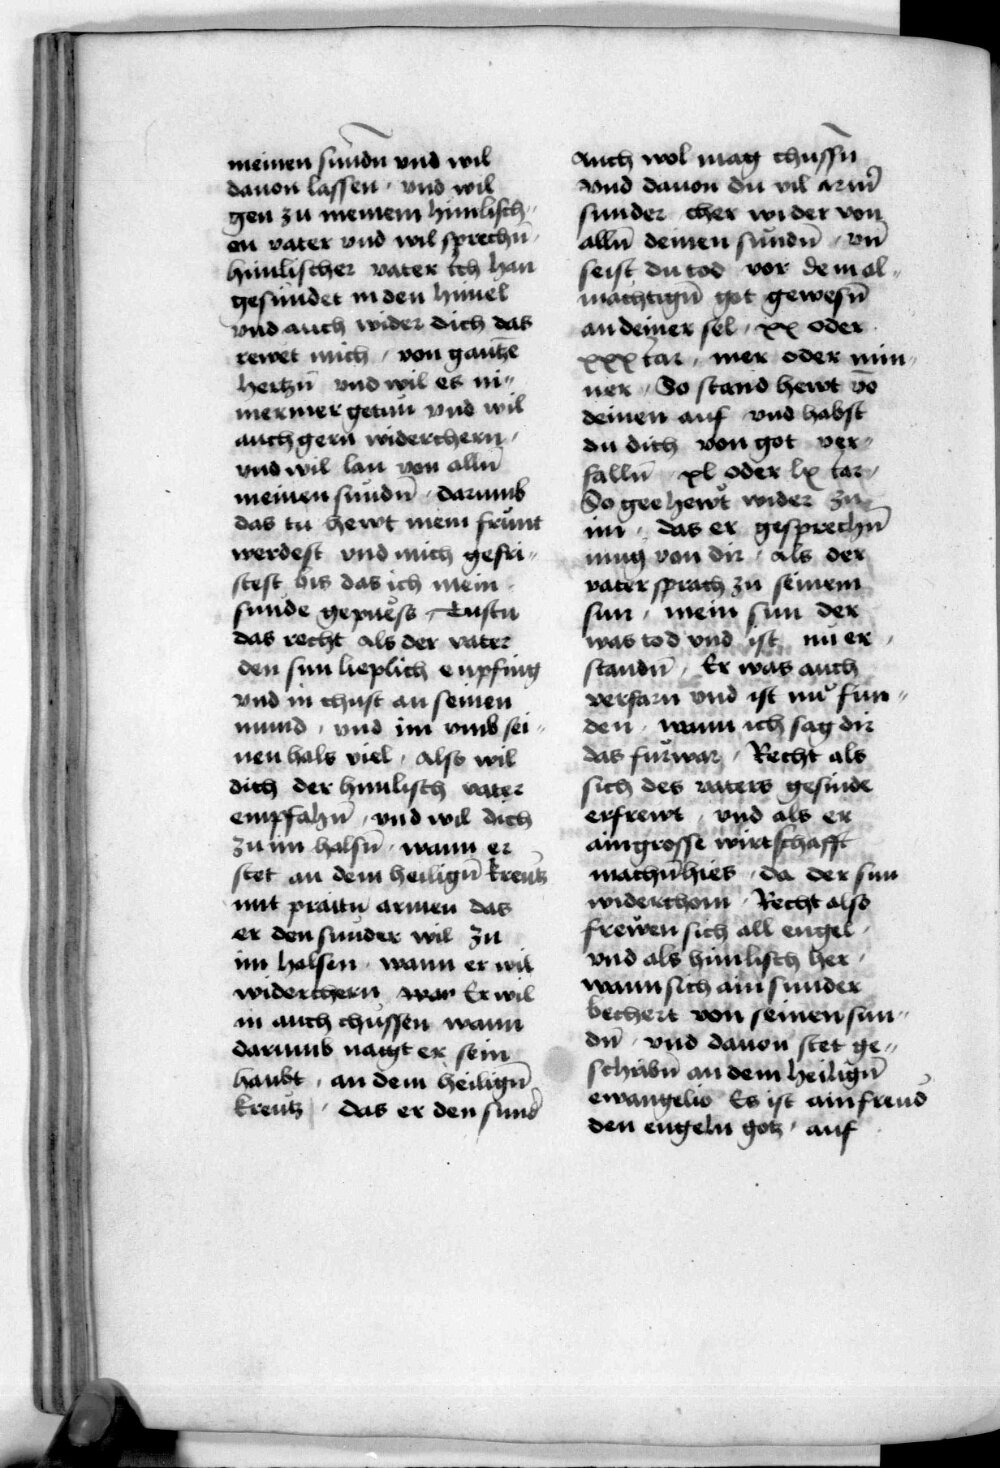 meinen sündn̄ vnd wil
dauon lassen · vnd wil
gen zu meinem himlisch-
en vater vnd wil sprechn̄ ·
himlischer vater ich han
gesündet in den himel
vnd auch wider dich das
rewet mich · von gantzē
hertzn̄ vnd wil es ni-
mermer getun vnd wil
auch gern widerchern ·
vnd wil lan von alln̄
meinen sündn̄ · darumb
das tu hewt mein frünt
werdest vnd mich gefri-
stest bis das ich mein
sünde gepuess · Tustu
das recht als der vater
den sun lieplich enpfing
vnd in chust an seinen
mund · vnd im vmb sei-
nen hals viel · Also wil
dich der himlisch vater
empfahn̄ · vnd wil dich
zu im halsn̄ · wann er
stet an dem heilign̄ kreutz
mit praitn̄ armen das
er den sunder wil zu
im halsen · wann er wil
widerchern Er wil
in auch chussen wann
darumb naigt er sein
haubt · an dem heilign̄
kreutz · das er den sund̄
Auch wol mag chussn̄
Vnd dauon du vil arm̄
sunder cher wider von
alln̄ deinen sündn̄ · vn̄
seist du tod vor dem al-
mächtign̄ got gewesn̄
an deiner sel · xx oder
xxx iar · mer oder min-
ner · So stand hewt vō
deinen auf vnd habst
du dich von got ver-
falln̄ xl oder lx iar ·
So gee hewt wider zu
im · das er gesprechn̄
mug von dir · als der
vater sprach zu seinem
sun · mein sun der
was tod vnd ist nu er
standn̄ · Er was auch
verfarn vnd ist nu fun-
den · wann ich sag dir
das fürwar · Recht als
sich des vaters gesinde
erfrewt · vnd als er
ain grosse wirtschafft
machn̄ hies · da der sun
widerchom · Recht also
frewen sich all engel ·
vnd als himlisch her ·
wann sich ain sunder
bechert von seinen sun-
dn̄ · vnd dauon stet ge-
schribn̄ an dem heilign̄
ewangelio Es ist ain freud
den engeln gotz · auf